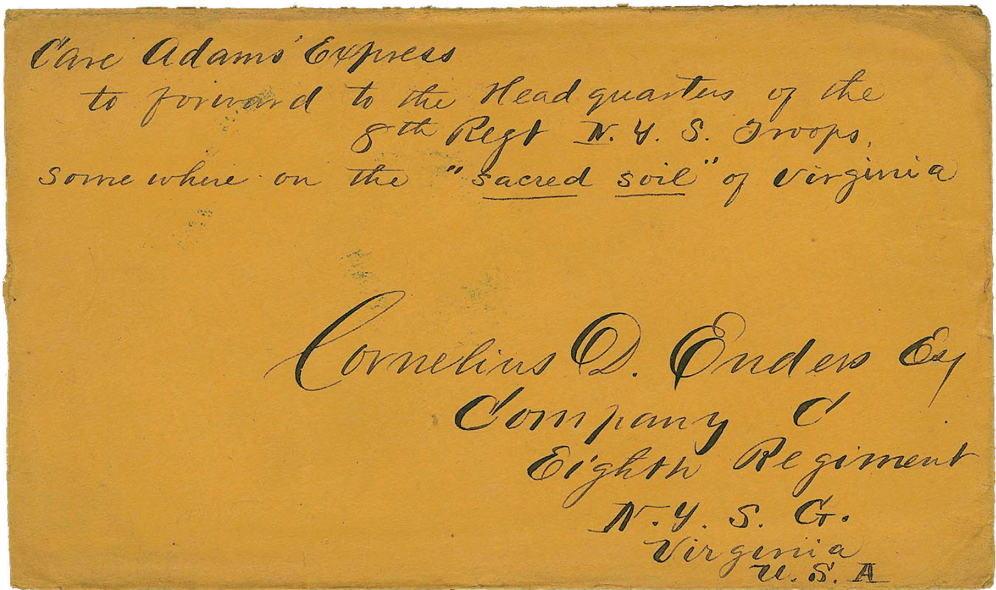 Care Adams' Express
to forward to the Headquarters of the
8th Regt N. Y. S. Troops,
somewhere on the "sacred soil" of Virginia
Cornelius D. Enders Esq
Company C
Eighth Regiment
N. Y. S. G.
Virginia
U. S. A